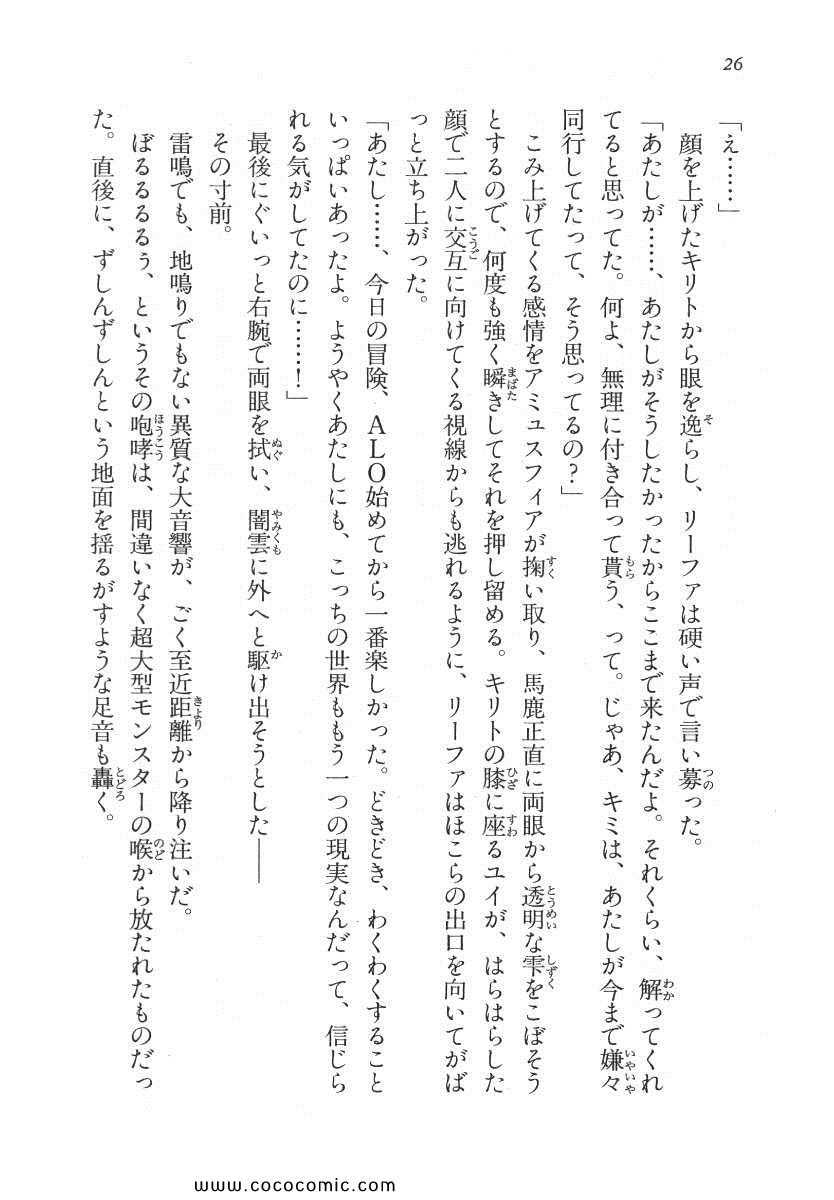 26
「え……」
顔を上げたキリトから眼を逸らし、リーファは硬い声で言い募った。
「あたしが……、あたしがそうしたかったからここまで来たんだよ。それくらい、解ってくれ
てると思ってた。何よ、無理に付き合って貰う、って。じゃあ、キミは、あたしが今まで嫌々
同行してたって、そう思ってるの？」
こみ上げてくる感情をアミュスフィアが掬い取り、馬鹿正直に両眼から透明な雫をこぼそう
とするので、何度も強く瞬きしてそれを押し留める。キリトの膝に座るユイが、はらはらした
顔で二人に交互に向けてくる視線からも逃れるように、リーファはほこらの出口を向いてがば
っと立ち上がった。
「あたし……、今日の冒険、ＡＬＯ始めてから一番楽しかった。どきどき、わくわくすること
いっぱいあったよ。ようやくあたしにも、こっちの世界ももう一つの現実なんだって、信じら
れる気がしてたのに……！」
最後にぐいっと右腕で両眼を拭い、闇雲に外へと駆け出そうとした――
その寸前。
雷鳴でも、地鳴りでもない異質な大音響が、ごく至近距離から降り注いだ。
ぼるるるるぅ、というその咆哮は、間違いなく超大型モンスターの喉から放たれたものだっ
た。直後に、ずしんずしんという地面を揺るがすような足音も轟く。
www.cococomic.com/